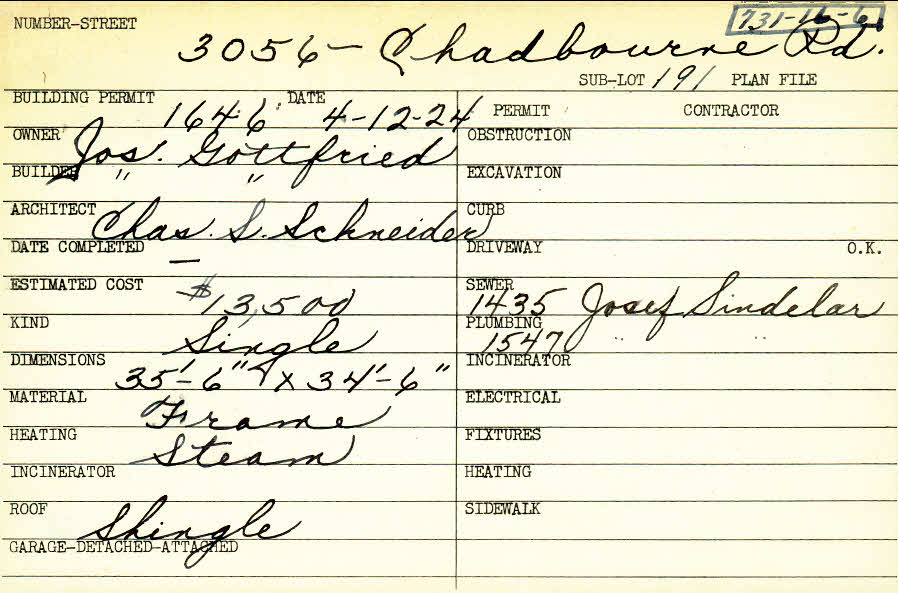 731-16-6
NUMBER-STREET
3056- Chadbourne Rd.
SUB-LOT 191 PLAN FILE
BUILDING PERMIT 1646 DATE 4-12-24
OWNER Jos. Gottfried
BUILDER " "
ARCHITECT Chas. S. Schneider
DATE COMPLETED —
ESTIMATED COST $13,500
KIND Single
DIMENSIONS 35'-6" x 34'-6"
MATERIAL Frame
HEATING Steam
INCINERATOR
ROOF Shingle
GARAGE-DETACHED-ATTACHED
PERMIT CONTRACTOR
OBSTRUCTION
EXCAVATION
CURB
DRIVEWAY O.K.
SEWER 1435 Josef Sindelar
PLUMBING 1547 " "
INCINERATOR
ELECTRICAL
FIXTURES
HEATING
SIDEWALK